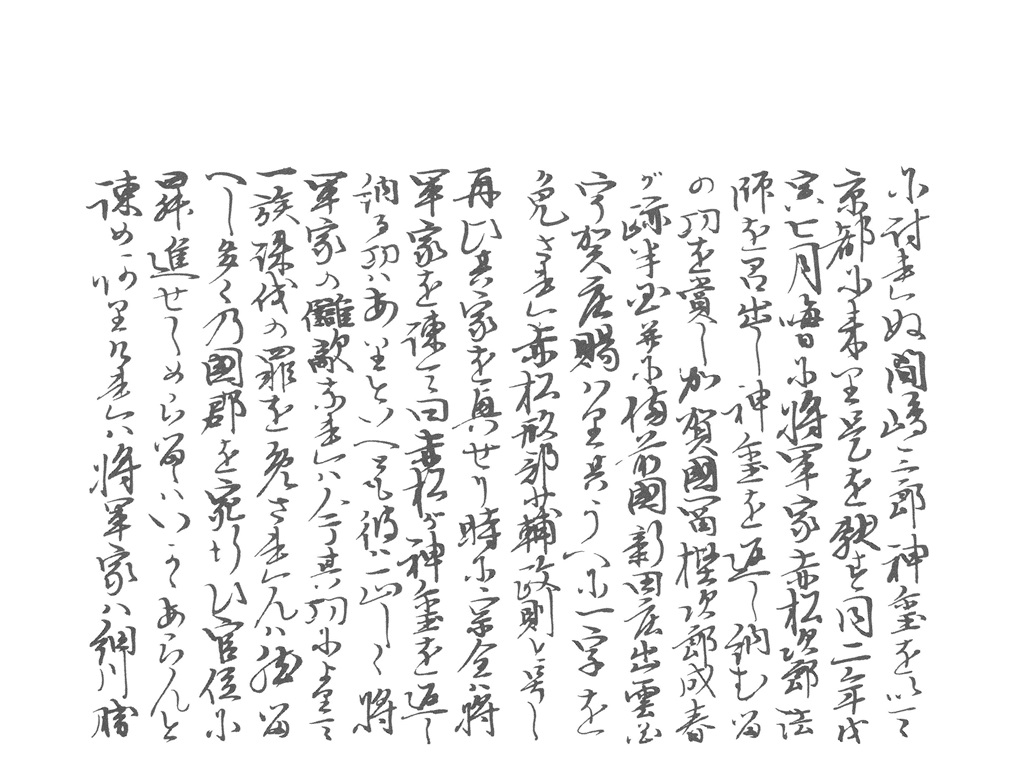 に討れぬ間嶋三郎神璽を以て
京都に来り是を献ず同二年戊
寅七月晦日に将軍家赤松次郎法
師を召出し神璽を返し納む
の功を賞し加賀國冨樫次郎成春
が跡半国并に備前國新田庄出雲国
宇賀庄賜はり其うへに一字を
免され赤松刑部少輔政則と号し
再び其家を興せり時に宗全は将
軍家を諫て曰赤松が神璽を返し
納る功はありといへども彼は正しく将
軍家の讎敵なれば今其功によりて
一族誅伐の罪を免されんは
べし多くの國郡を宛行ひ官位に
昇進せしめらいかゞあらんと
諫めかりければ将軍家は細川勝